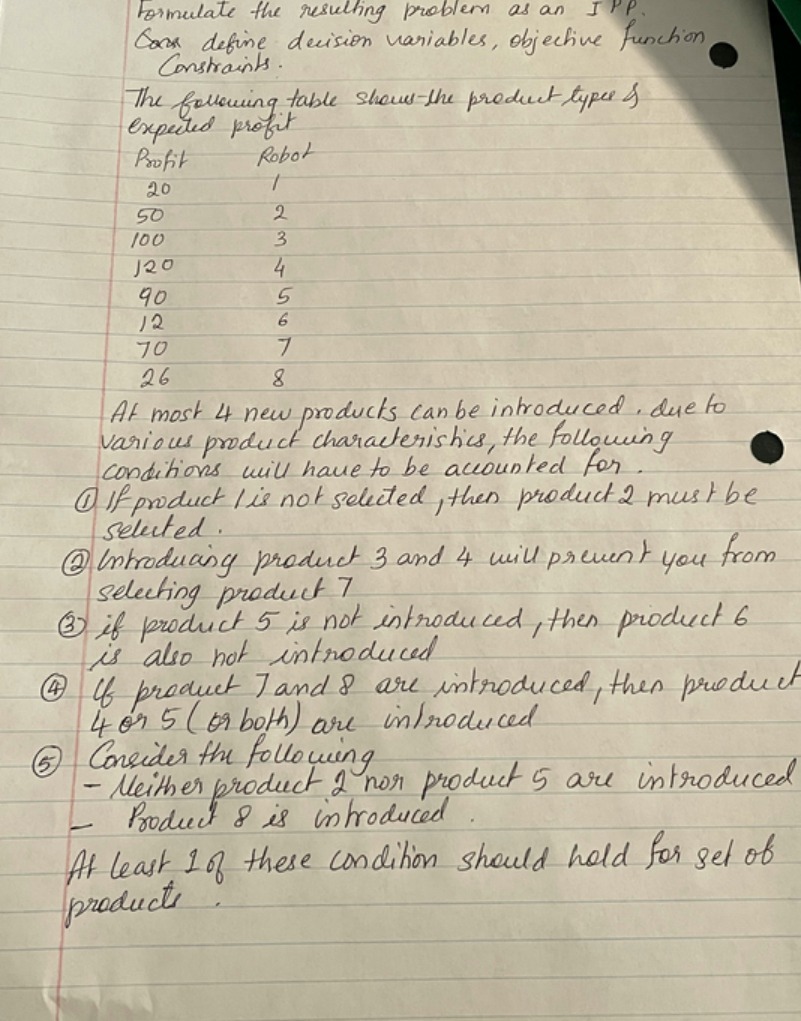 Formulate the resulting problem as an IPP.
define decision variables, objective function
Constraints.
The following table shows the product types &
expected profit
Profit Robot
20 1
50 2
100 3
120 4
90 5
12 6
70 7
26 8
At most 4 new products can be introduced. due to
various product characteristics, the following
conditions will have to be accounted for.
① If product 1 is not selected, then product 2 must be
selected.
② Introducing product 3 and 4 will prevent you from
selecting product 7
③ if product 5 is not introduced, then product 6
is also not introduced
④ If product 7 and 8 are introduced, then product
4 or 5 (or both) are introduced
⑤ Consider the following
- Neither product 2 nor product 5 are introduced
- Product 8 is introduced.
At least 1 of these condition should hold for set of
products.